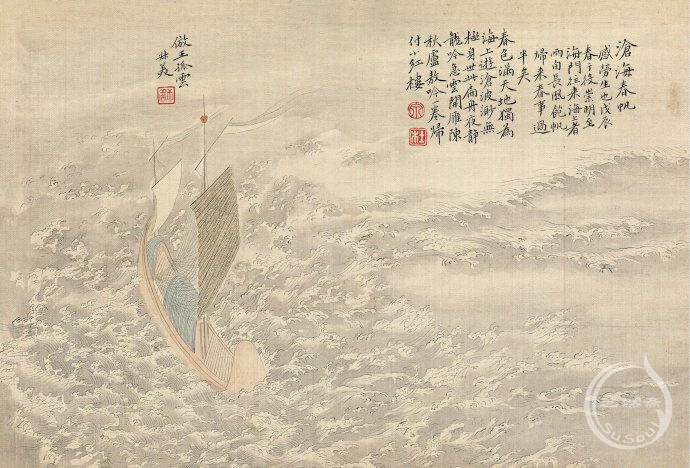 滄海春帆
感勞生也戊辰
春予役崇明至
海門往來海上者
兩旬長風飽帆
歸來春事過
半矣
春色滿天地獨為
海上遊滄波渺無
極身世此扁舟夜靜
龍吟急雲開雁陳
秋盧敖吟一卷歸
付小紅樓
倣王孤雲
叔美
SuSouL